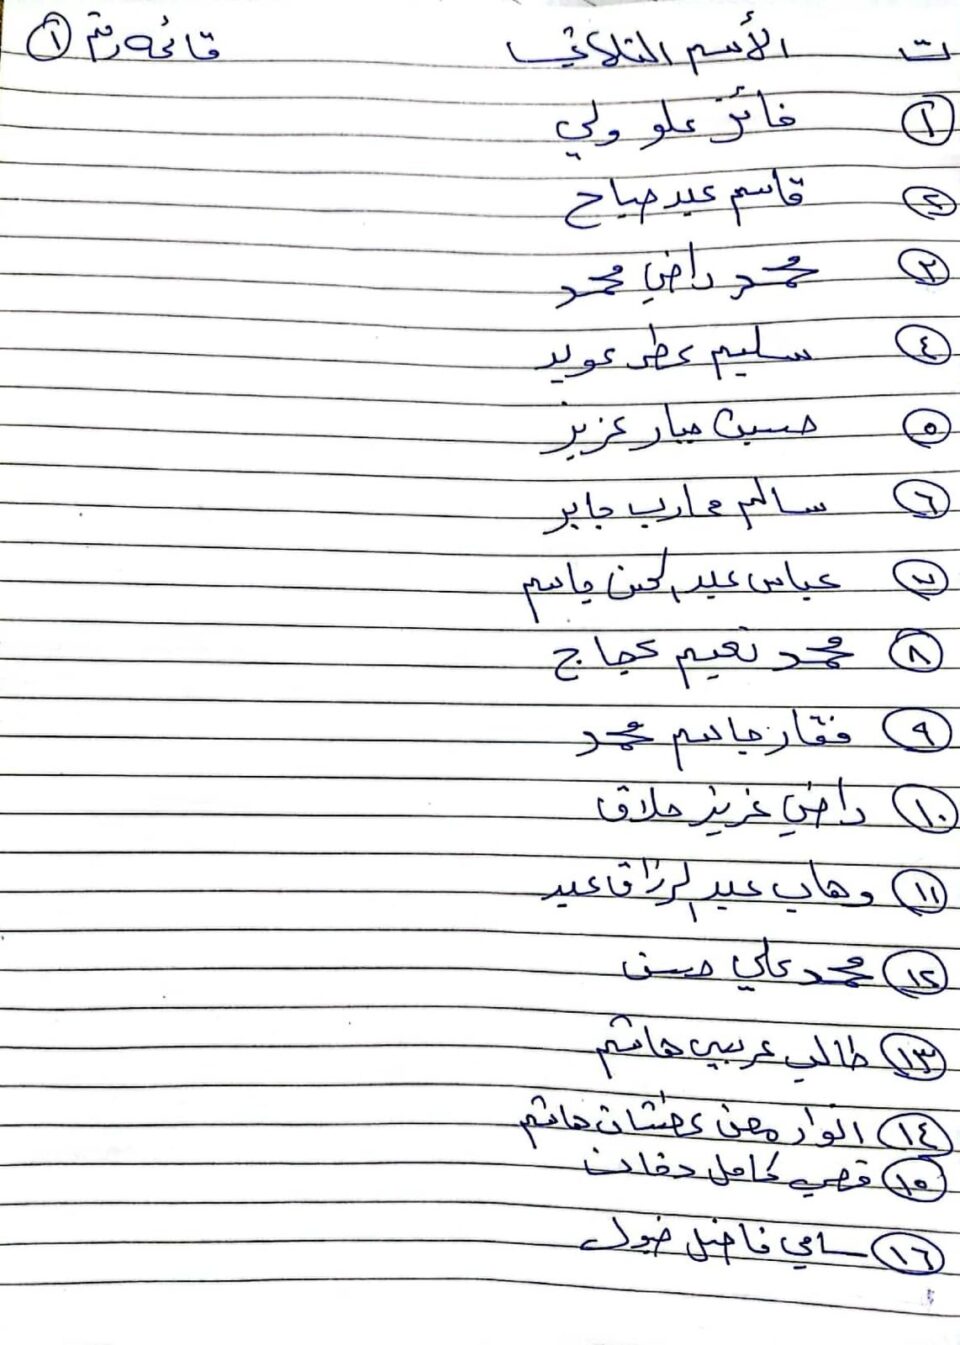 ت الأسم الثلاثي قائمة رقم ١
١ فائز علو ولي
٢ قاسم عبد صياح
٣ محمد راضي محمد
٤ سليم عطر عويد
٥ حسين جبار عزيز
٦ سالم محارب جابر
٧ عباس عبد الحسن جاسم
٨ محمد نعيم عجاج
٩ فقار جاسم محمد
١٠ راضي عزيز حلاق
١١ وهاب عبد الرزاق عبد
١٢ محمد علي حسن
١٣ طالب عريبي هاشم
١٤ انوار عطشان هاشم
١٥ قصي كامل دفان
١٦ سامي فاضل